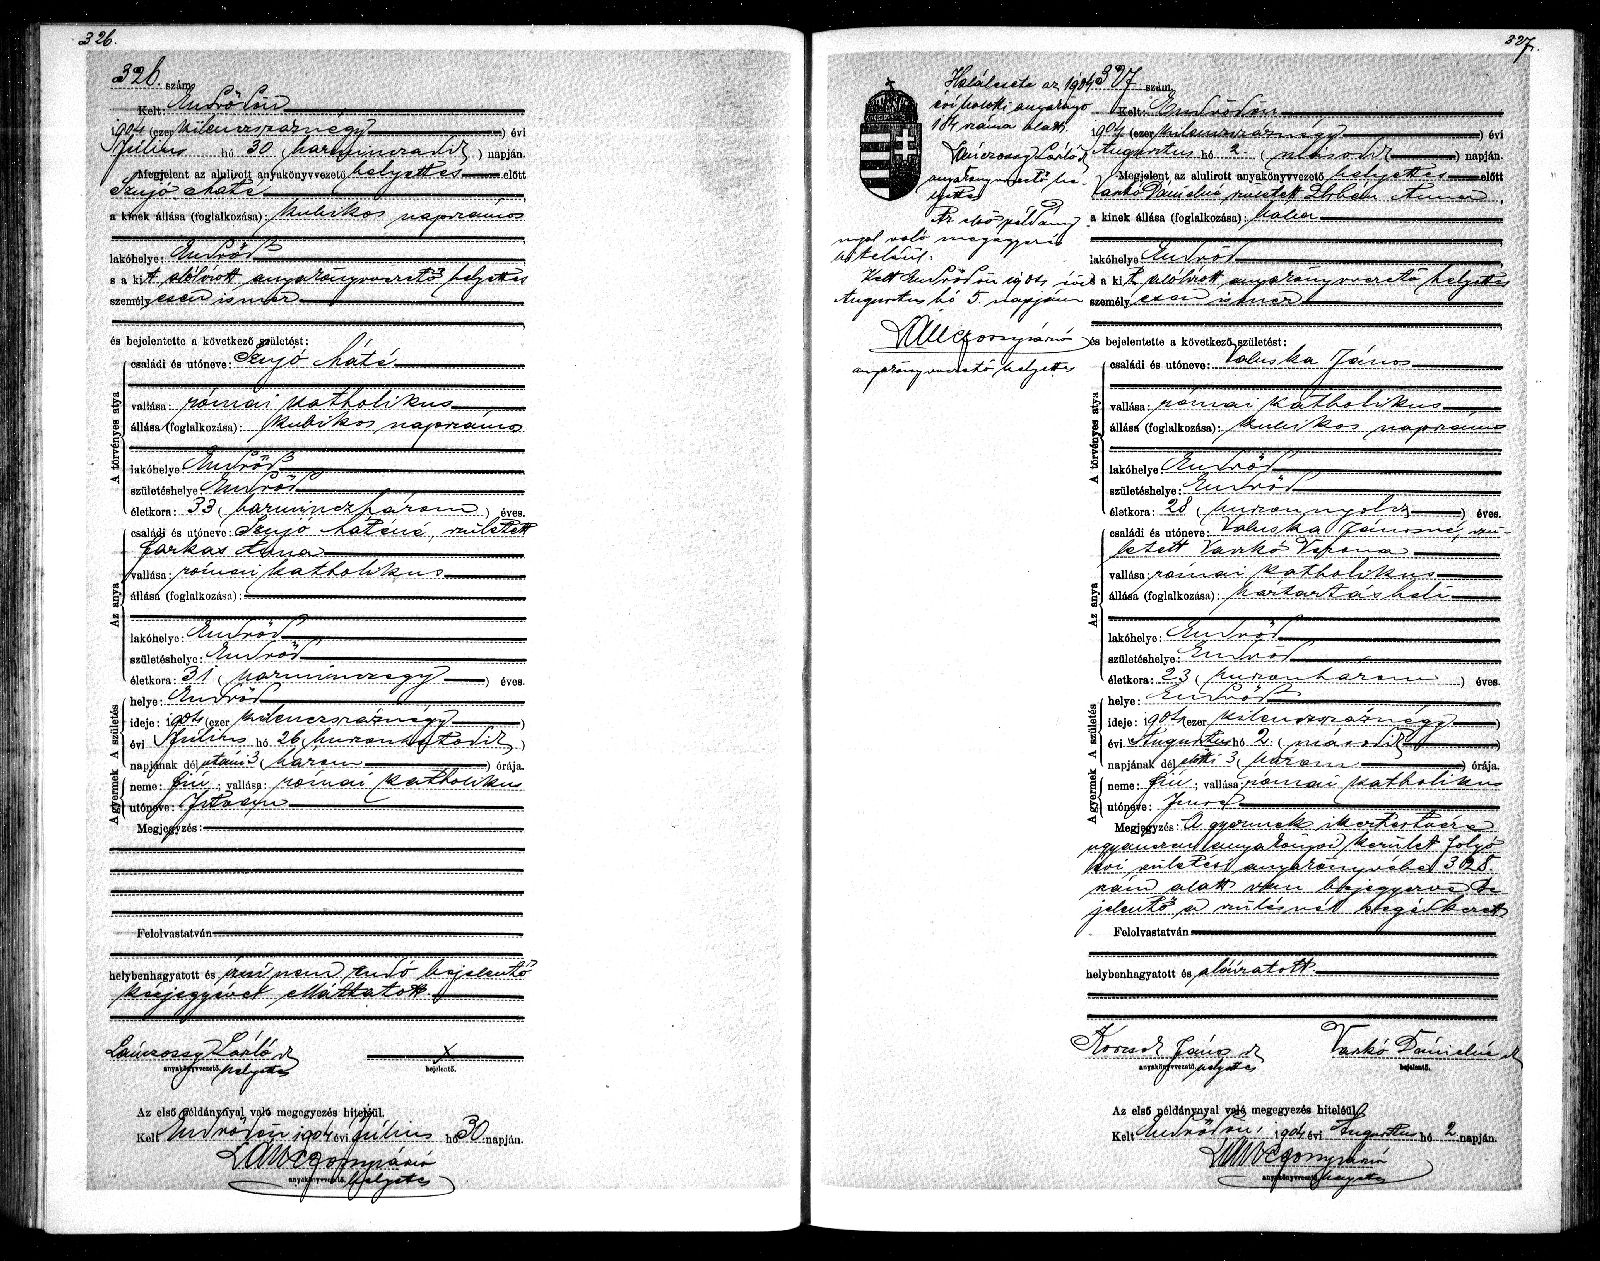 326.
326. szám.
Kelt: Endrődön
1904 (ezer kilenczszáznégy) évi
Július hó 30 (harminczadik) napján.
Megjelent az alulirott anyakönyvvezető helyettes előtt
Szujó Máté
a kinek állása (foglalkozása): kubikos napszámos
lakóhelye: Endrőd
s a kit alólírott anyakönyvvezető helyettes
személyesen ismer
és bejelentette a következő születést:
A törvényes atya
családi és utóneve: Szujó Máté
vallása: római katholikus
állása (foglalkozása): kubikos napszámos
lakóhelye Endrőd
születéshelye: Endrőd
életkora: 33 (harminczhárom) éves.
Az anya
családi és utóneve: Szujó Máténé, született
Farkas Anna
vallása: római katholikus
állása (foglalkozása):
lakóhelye: Endrőd
születéshelye: Endrőd
életkora: 31 (harminczegy) éves.
A születés
helye: Endrőd
ideje: 1904 (ezer kilenczszáznégy)
évi Július hó 26 (huszonhatodik)
napjának dél utáni 3 (három) órája.
A gyermek
neme: fiú; vallása: római katholikus
utóneve: István
Megjegyzés:
Felolvastatván
helybenhagyatott és írni nem tudó bejelentő
kézjegyével elláttatott
Lánczossy László
anyakönyvvezető helyettes
x
bejelentő.
Az első példánynyal való megegyezés hiteléül.
Kelt Endrődön 1904 évi Július hó 30 napján.
anyakönyvvezető helyettes
327.
Halálesete az 1904
évi holtaki anyakönyv
184 száma alatt.
Lánczossy László
anyakönyvvezető he-
lyettes
Az első példány-
nyal való megegyezés
hiteléül.
Kelt Endrődön 1904 évi
Augusztus hó 5. napján
anyakönyvvezető helyettes
327 szám.
Kelt: Endrődön
1904 (ezer kilenczszáznégy) évi
Augusztus hó 2. (második) napján.
Megjelent az alulirott anyakönyvvezető helyettes előtt
Vaskó Dánielné született Anna
a kinek állása (foglalkozása): bába
lakóhelye Endrőd
s a kit alólírott anyakönyvvezető helyettes
személyesen ismer
és bejelentette a következő születést:
A törvényes atya
családi és utóneve: Valuska János
vallása: római katholikus
állása (foglalkozása): kubikos napszámos
lakóhelye Endrőd
születéshelye: Endrőd
életkora: 28 (huszonnyolcz) éves.
Az anya
családi és utóneve: Valuska Jánosné, szü-
letett Vaskó Verona
vallása: római katholikus
állása (foglalkozása): háztartásbeli
lakóhelye: Endrőd
születéshelye: Endrőd
életkora: 23 (huszonhárom) éves.
A születés
helye: Endrőd
ideje: 1904 (ezer kilenczszáznégy)
évi Augusztus hó 2. (második)
napjának dél előtti 3 (három) órája.
A gyermek
neme: fiú; vallása: római katholikus
utóneve: Imre
Megjegyzés: A gyermek ikertestvére
ugyanezen anyakönyvi kerület folyó
évi születési anyakönyvébe 328
szám alatt van bejegyezve Be-
jelentő a szülésnél segédkezett
Felolvastatván
helybenhagyatott és aláiratott
János
anyakönyvvezető helyettes
Vaskó Dánielné
bejelentő.
Az első példánynyal való megegyezés hiteléül.
Kelt Endrődön, 1904 évi Augusztus hó 2 napján.
anyakönyvvezető helyettes